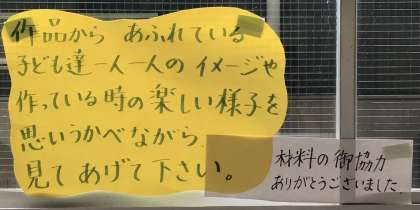 作品から あふれている
子ども達一人一人の イメージや
作っている時の楽しい様子を
思いうかべながら
見てあげて下さい。
材料の御協力
ありがとうございました